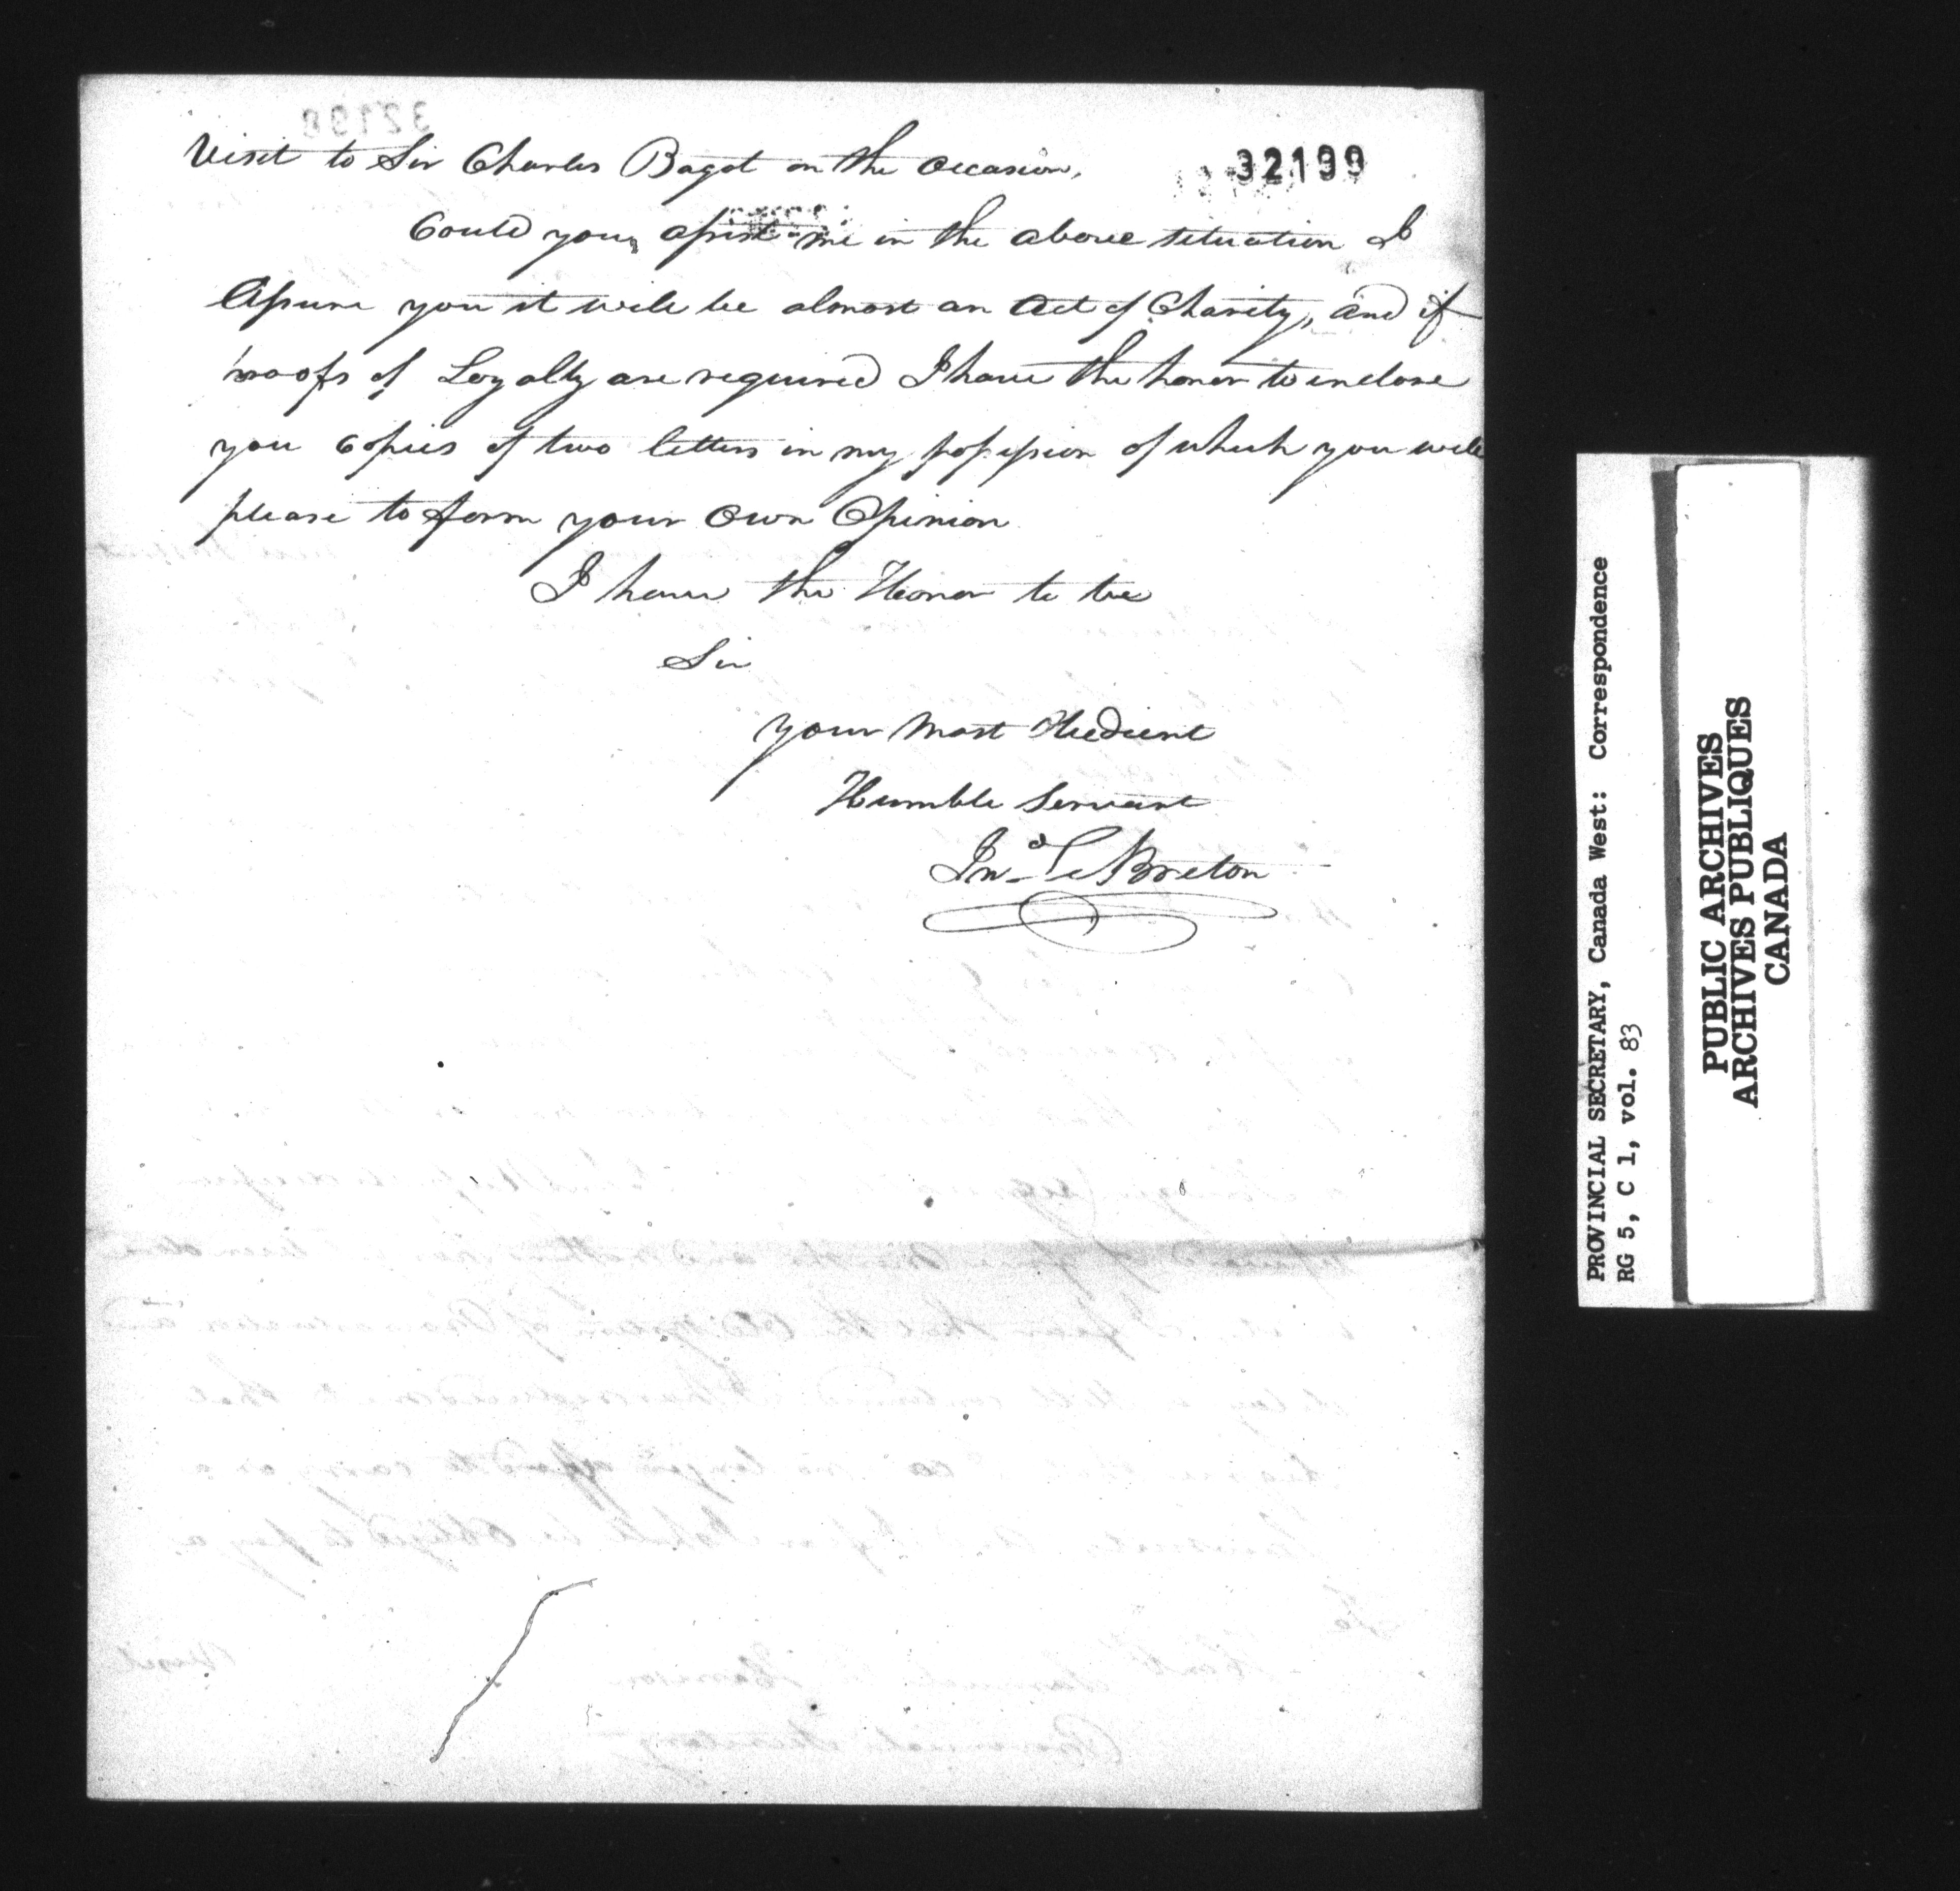 32199
Visit to Sir Charles Bagot on the Occasion,
Could you assist me in the above situation I
Assure you it will be almost an Act of Charity, and if
proofs of Loyalty are required I have the honor to inclose
you Copies of two letters in my possession of which you will
please to form your Own Opinion
I have the Honor to be
Sir
your Most Obedient
Humble Servant
Jno Le Breton
PROVINCIAL SECRETARY, Canada West: Correspondence
RG 5, C 1, vol. 83
PUBLIC ARCHIVES
ARCHIVES PUBLIQUES
CANADA